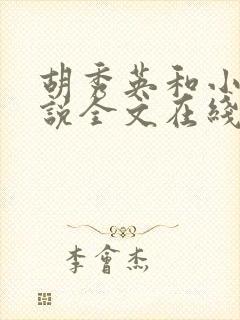 胡秀英和小
說全文在綫
李會杰